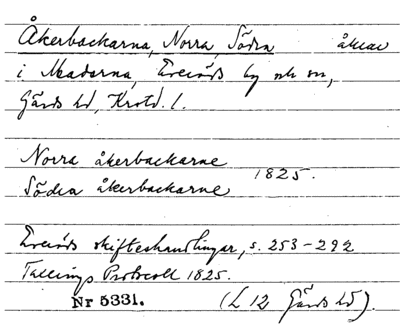 Åkerbackarna, Norra, Södra åkrar
i Madarna, Everöds by och sn,
Gärds hd, Krstd. l.
Norra åkerbackarne
1825.
Södra åkerbackarne
Everöds skifteshandlingar, s. 253-292
Tallnings Protocoll 1825.
Nr 5331. (L 12 Gärds hd).